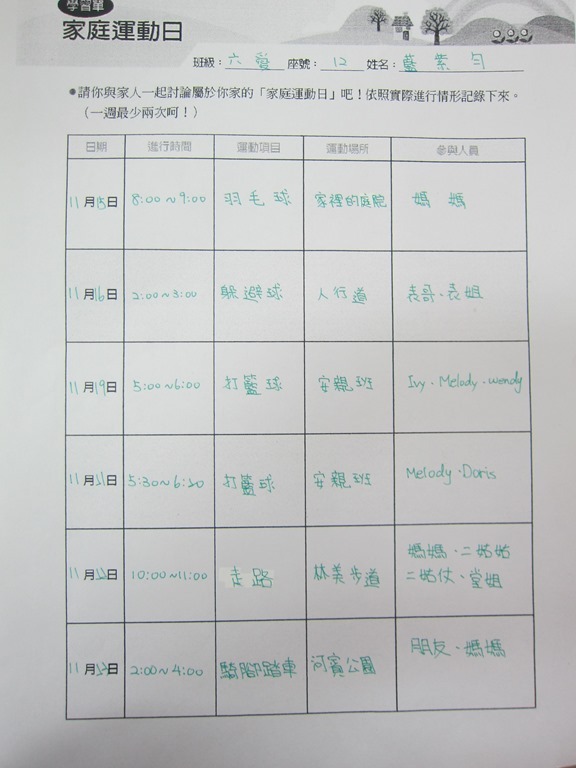 學習單
家庭運動日
班級：六愛 座號：12 姓名：藍紫勻
●請你與家人一起討論屬於你家的「家庭運動日」吧！依照實際進行情形記錄下來。
（一週最少兩次呵！）
日期 進行時間 運動項目 運動場所 參與人員
11月15日 8:00~9:00 羽毛球 家裡的庭院 媽媽
11月16日 2:00~3:00 躲避球 人行道 表哥、表姐
11月19日 5:00~6:00 打籃球 安親班 Ivy、Melody、wendy
11月21日 5:30~6:20 打籃球 安親班 Melody、Doris
11月22日 10:00~11:00 走路 林美步道 媽媽、二姑姑
二姑丈、堂姐
11月23日 2:00~4:00 騎腳踏車 河賓公園 朋友、媽媽